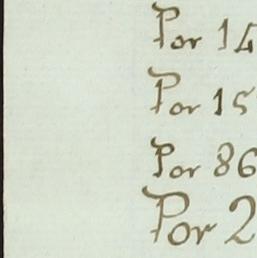 Por 14
Por 15
Por 86
Por 2